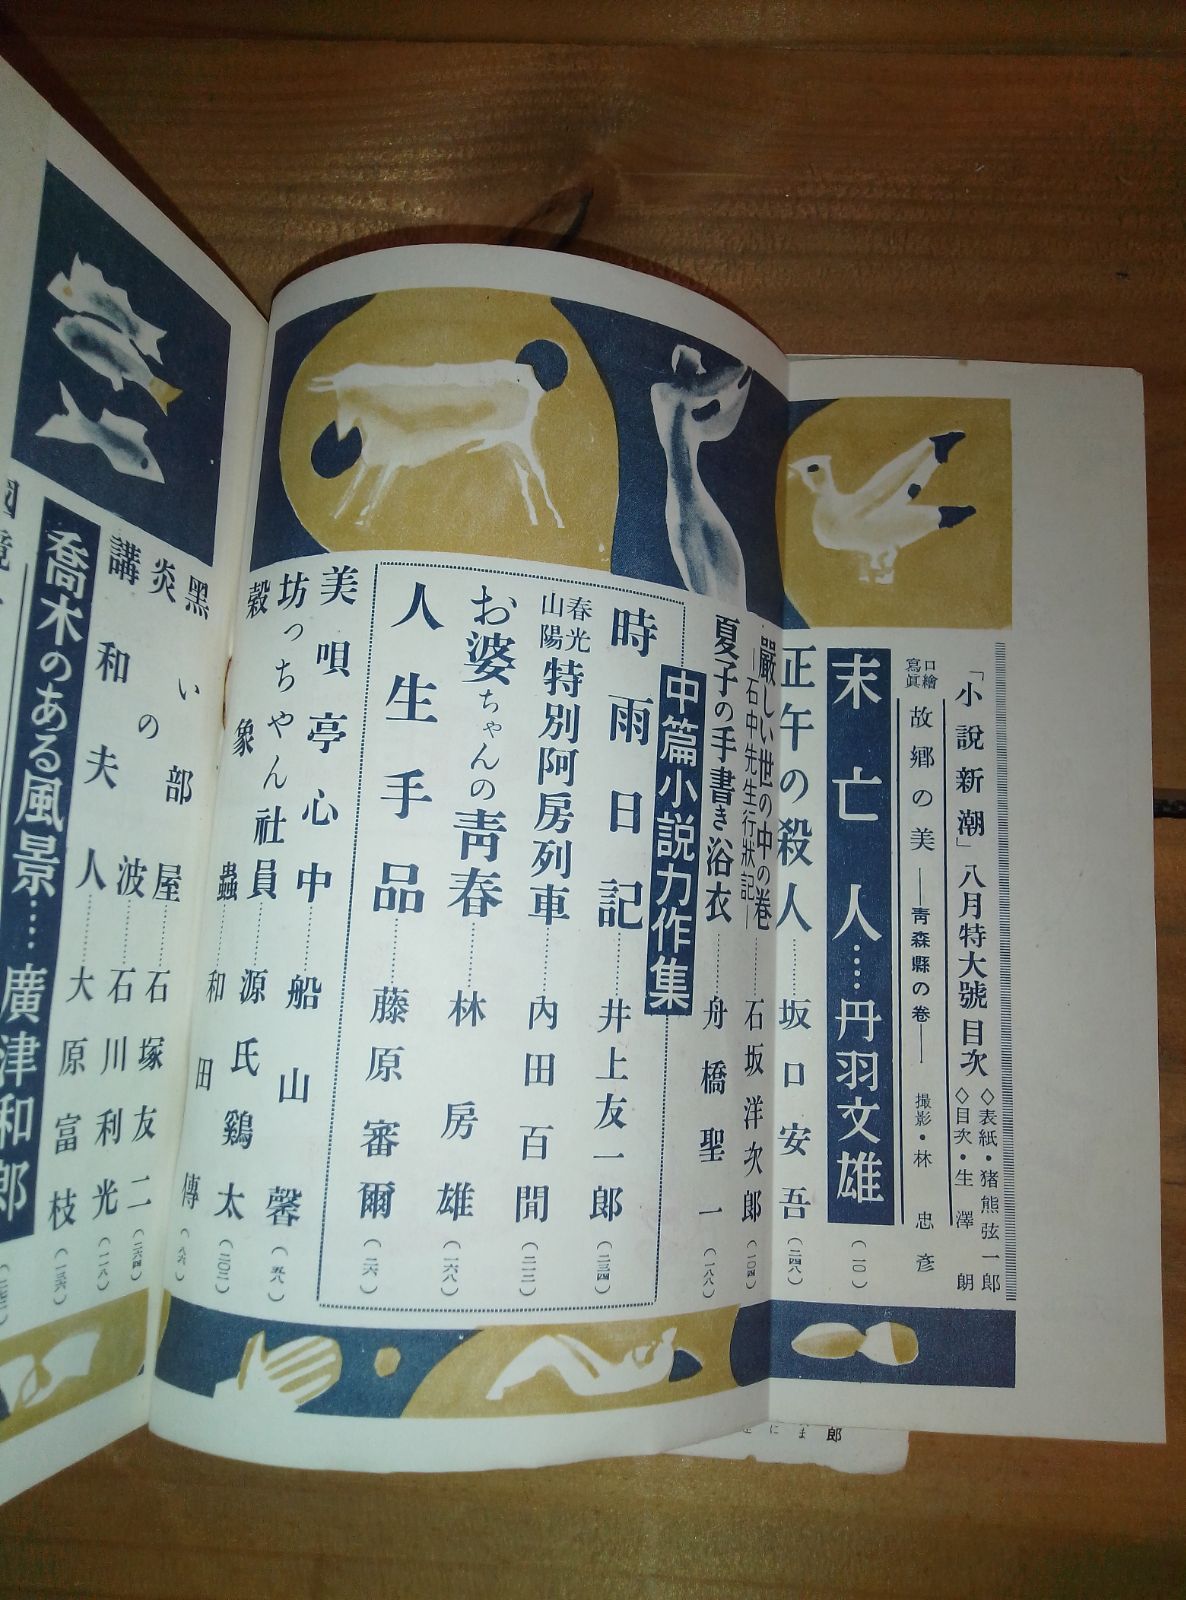 「小説新潮」八月特大號 目次
◇表紙・猪熊弦一郎
◇目次・生澤 朗
口繪寫眞 故郷の美――青森縣の卷―― 撮影・林 忠彦
末亡人……丹羽文雄 (一〇)
正午の殺人……坂口安吾 (二四八)
嚴しい世の中の卷
―石中先生行狀記―……石坂洋次郎 (一〇四)
夏子の手書き浴衣……舟橋聖一 (一八八)
中篇小説力作集
時雨日記……井上友一郎 (二三四)
春光山陽 特別阿房列車……内田百閒 (二一二)
お婆ちゃんの靑春……林房雄 (一六八)
人生手品……藤原審爾 (二六)
美唄亭心中……船山馨 (五八)
坊っちゃん社員……源氏鷄太 (二〇二)
穀象蟲……和田傳 (八六)
黑い部屋……石塚友二 (二六四)
炎の波……石川利光 (一二八)
講和夫人……大原富枝 (一三六)
喬木のある風景……廣津和郎
國境
郎